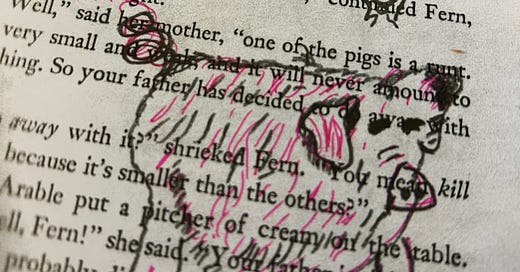 ght.
Well," said her mother, "one of the pigs is a runt.
very small and weak, and it will never amount to
hing. So your father has decided to do away with
away with it?" shrieked Fern. "You mean kill
because it's smaller than the others?"
Arable put a pitcher of cream on the table.
ell, Fern!" she said. "Your father
probably di